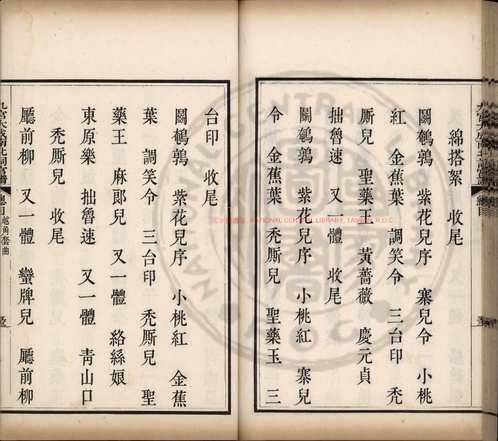 綿搭絮　收尾
鬭鵪鶉　紫花兒序　寨兒令　小桃
紅　金蕉葉　調笑令　三台印　禿
厮兒　聖藥王　黃薔薇　慶元貞
拙魯速　又一體　收尾
鬭鵪鶉　紫花兒序　小桃紅　寨兒
令　金蕉葉　禿厮兒　聖藥王　三
台印　收尾
鬭鵪鶉　紫花兒序　小桃紅　金蕉
葉　調笑令　三台印　禿厮兒　聖
藥王　麻郎兒　又一體　絡絲娘
東原樂　拙魯速　又一體　青山口
禿厮兒　收尾
廳前柳　又一體　蠻牌兒　廳前柳
九宮大成南北詞宮譜
總目　越角套曲